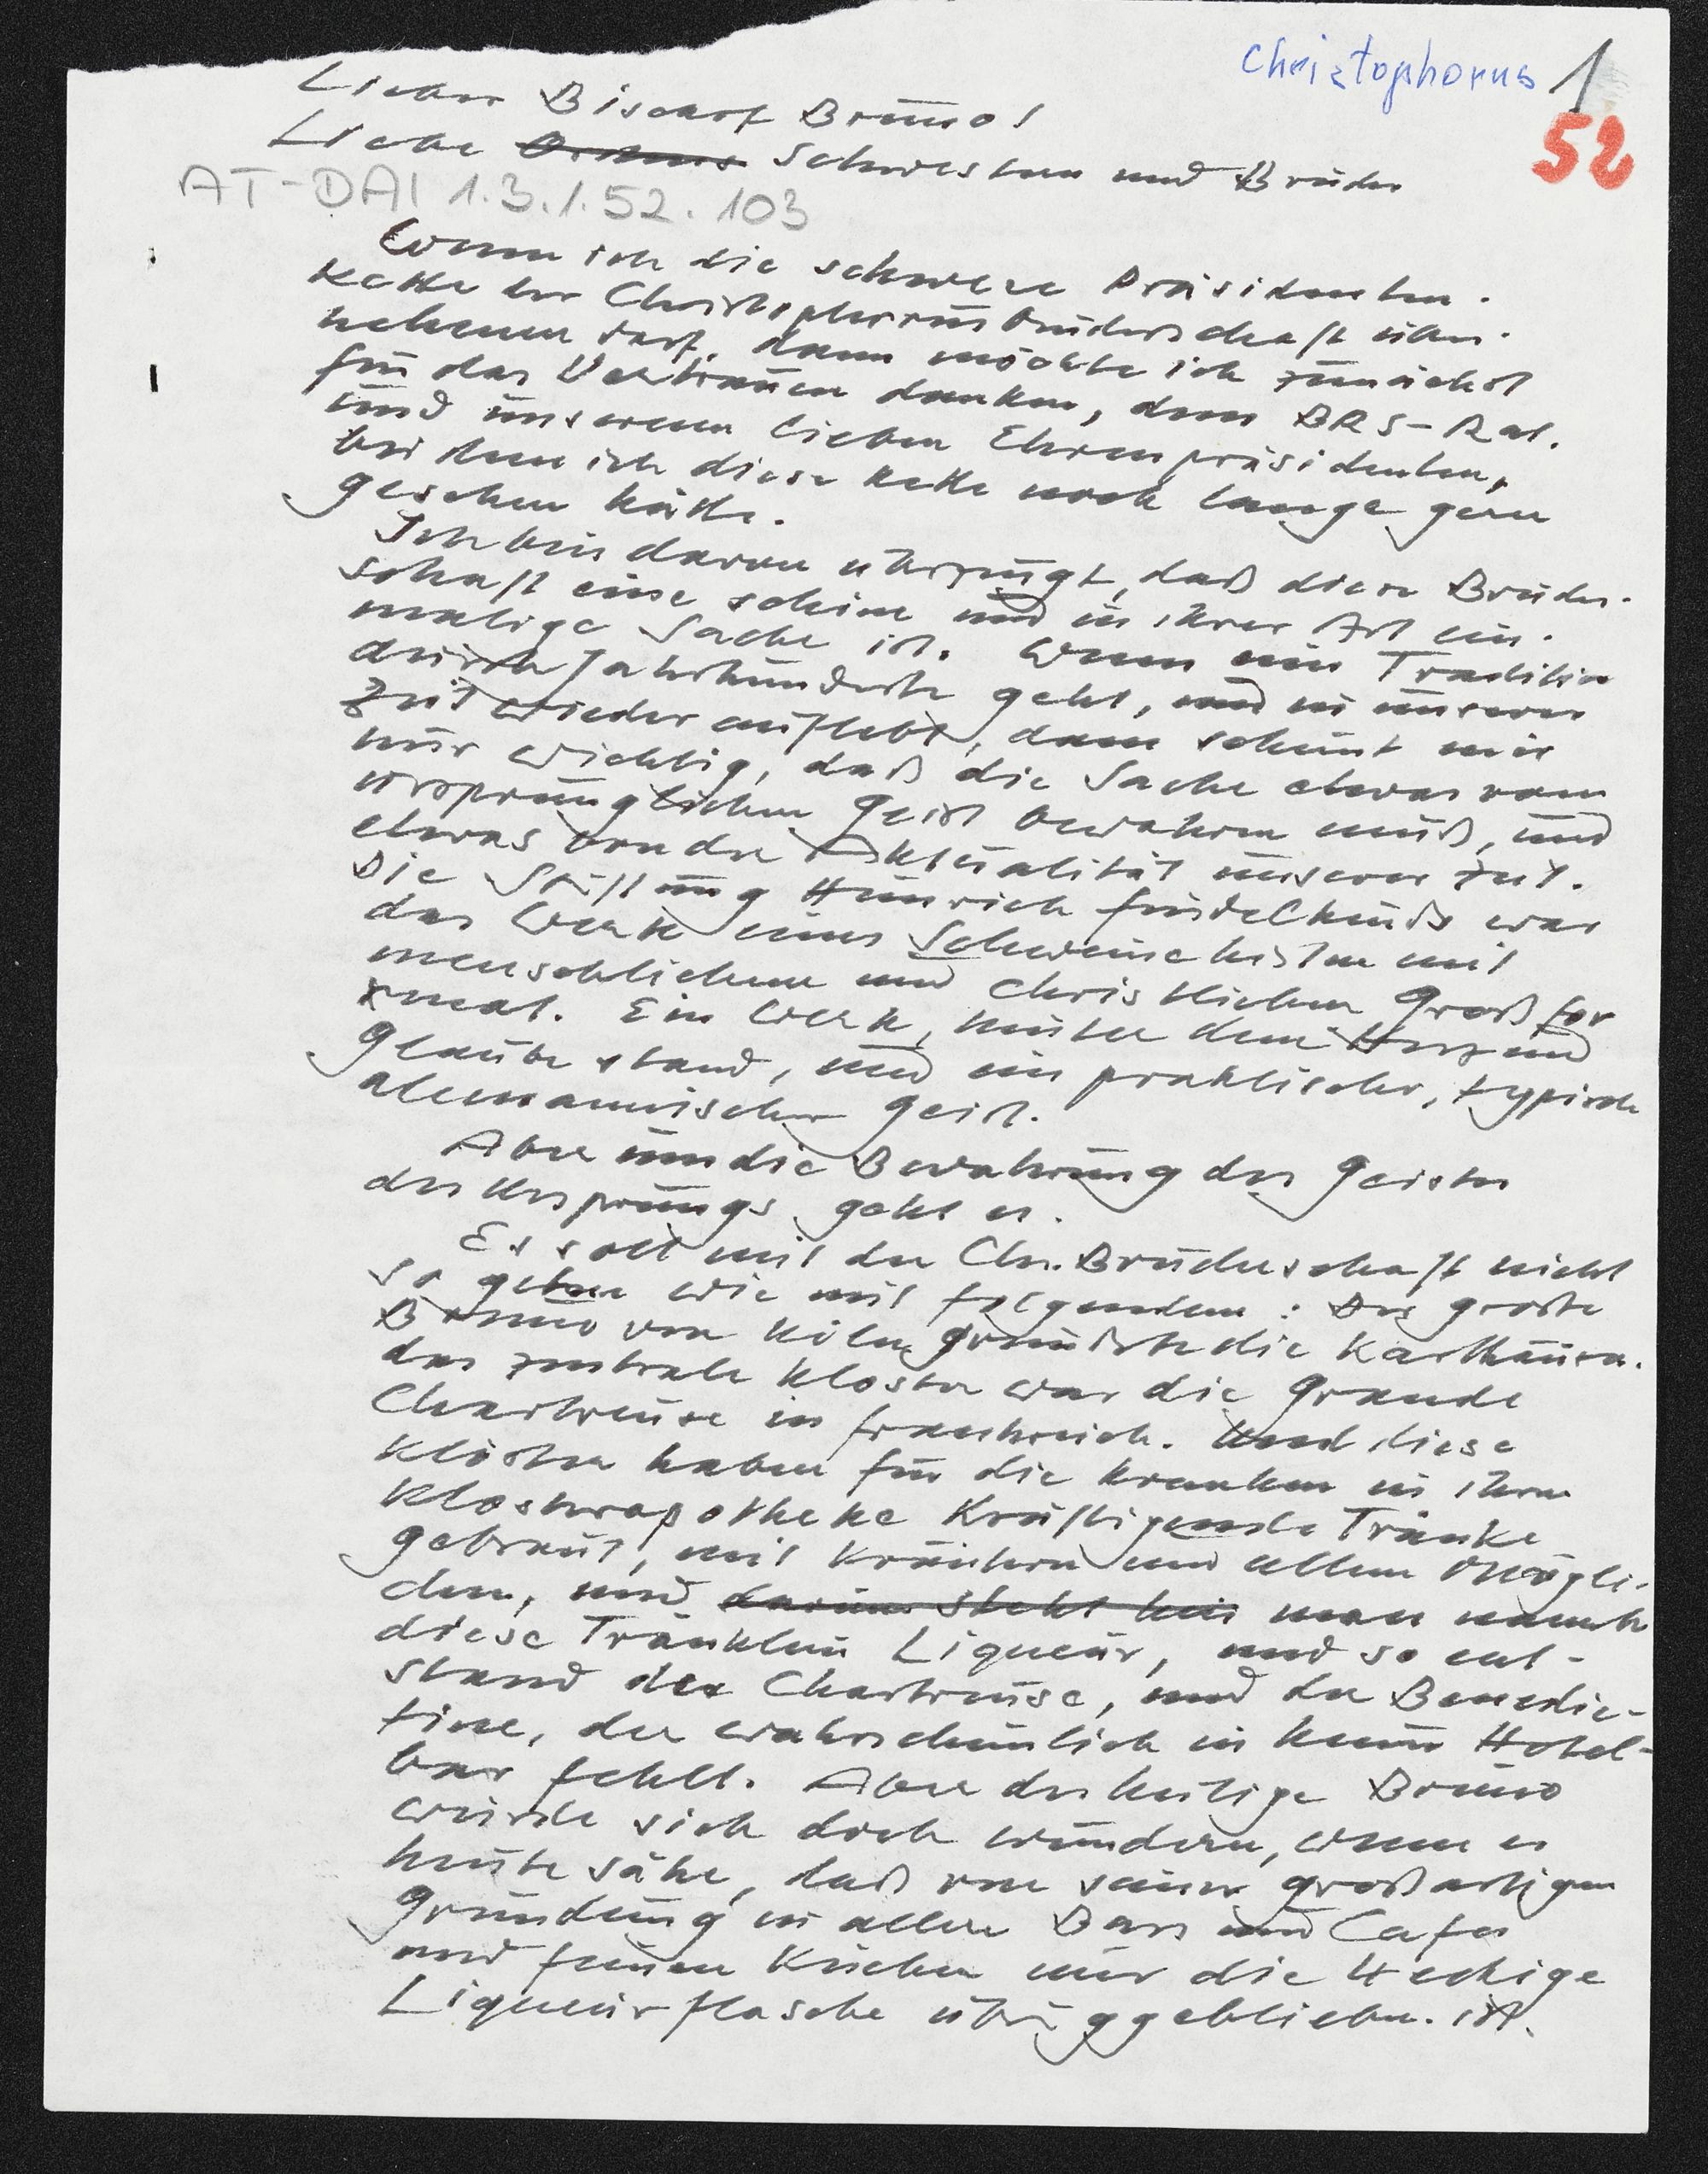 Christophorus 1
52
Lieber Bischof Bruno!
Liebe Schwestern und Brüder
AT-DAI 1.3.1.52.103
Wenn ich die schwere Präsidenten-
kette der Christophorusbruderschaft über-
nehmen darf, dann möchte ich zunächst
für das Vertrauen danken, dem BRS-Rat.
und unserem lieben Ehrenpräsidenten,
bei dem ich diese Kette noch lange gern
gesehen hätte.
Ich bin davon überzeugt, daß diese Bruder-
schaft eine schöne und in ihrer Art ein-
malige Sache ist. Wenn eine Tradition
durch Jahrhunderte geht, und in unserer
Zeit wieder auflebt, dann scheint mir
nur wichtig, daß die Sache etwas vom
ursprünglichen Geist bewahren muß, und
etwas von der Aktualität unserer Zeit.
Die Stiftung Heinrich Findelkinds war
das Werk eines Schweinehirten mit
menschlichem und christlichem Großfor
mat. Ein Werk, hinter dem Herz und
Glaube stand, und ein praktischer, typisch
alemannischer Geist.
Aber um die Bewahrung des Geistes
des Ursprungs geht es.
Es soll mit der Chr. Bruderschaft nicht
so gehen wie mit folgendem: Der große
Bruno von Köln gründete die Karthäuser.
das zentrale Kloster war die Grande
Chartreuse in Frankreich. Und diese
Klöster haben für die Kranken in ihrer
Klosterapotheke Kräftigende Tränke
gebraut, mit Kräutern und allem Mögli-
chen, und darum steht hier man nannte
diese Tränklein Liqueur, und so ent-
stand der Chartreuse, und der Benedic-
tine, der wahrscheinlich in keiner Hotel-
bar fehlt. Aber der heilige Bruno
würde sich doch wundern, wenn er
heute sähe, daß von seiner großartigen
Gründung in allen Bars und Cafes
und feinen Küchen nur die 4 eckige
Liqueurflasche übriggeblieben ist.